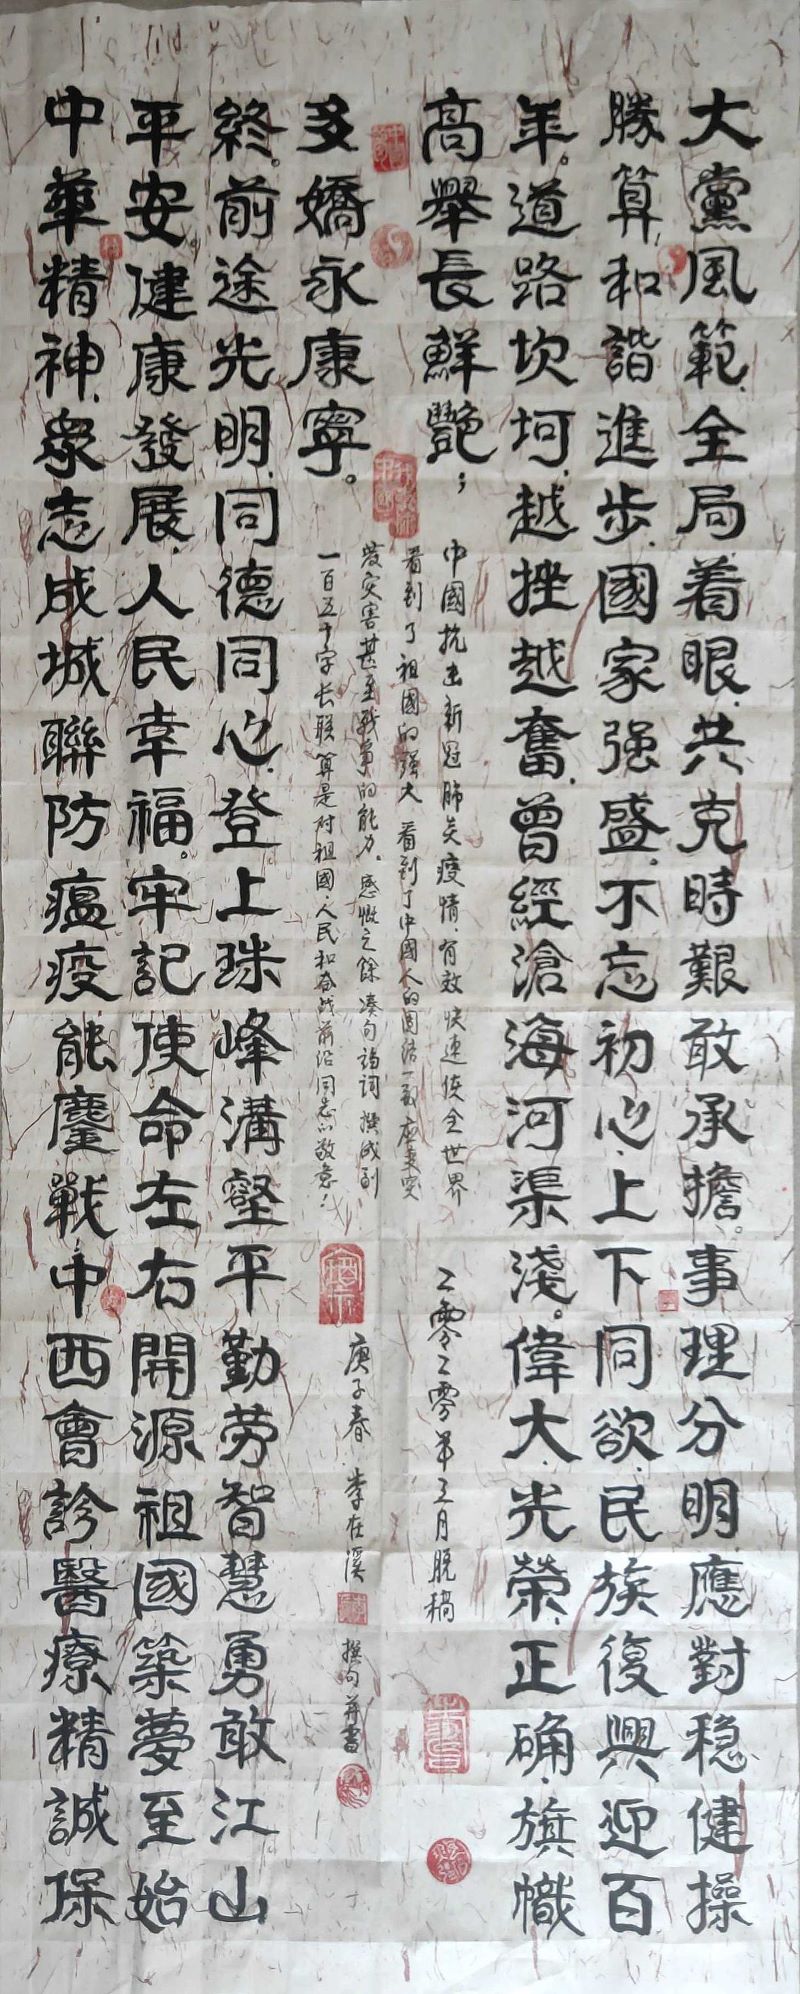 大黨風範、全局着眼、共克時艱敢承擔。事理分明、應對穩健操
勝算、和諧進步、國家强盛。不忘初心、上下同欲、民族復興迎百
年。道路坎坷、越挫越奮、曾經滄海河渠淺。偉大、光榮、正确、旗幟
高舉長鮮艷；
中華精神、衆志成城聯防瘟疫能鏖戰；中西會診、醫療精誠保
平安、健康發展、人民幸福。牢記使命左右開源祖國築夢至始
終。前途光明、同德同心、登上珠峰溝壑平勤劳智慧勇敢江山
多嬌永康寧。
中國抗击新冠肺炎疫情、有效快速使全世界
看到了祖國的强大 看到了中國人的团结一致应对突
发灾害甚至戰争的能力。感慨之餘凑句謅词撰成到
一百五十字长联算是对祖國、人民和奋战前沿同志以敬意！
二零二零年三月脱稿
庚子春 李在溪 撰句并書